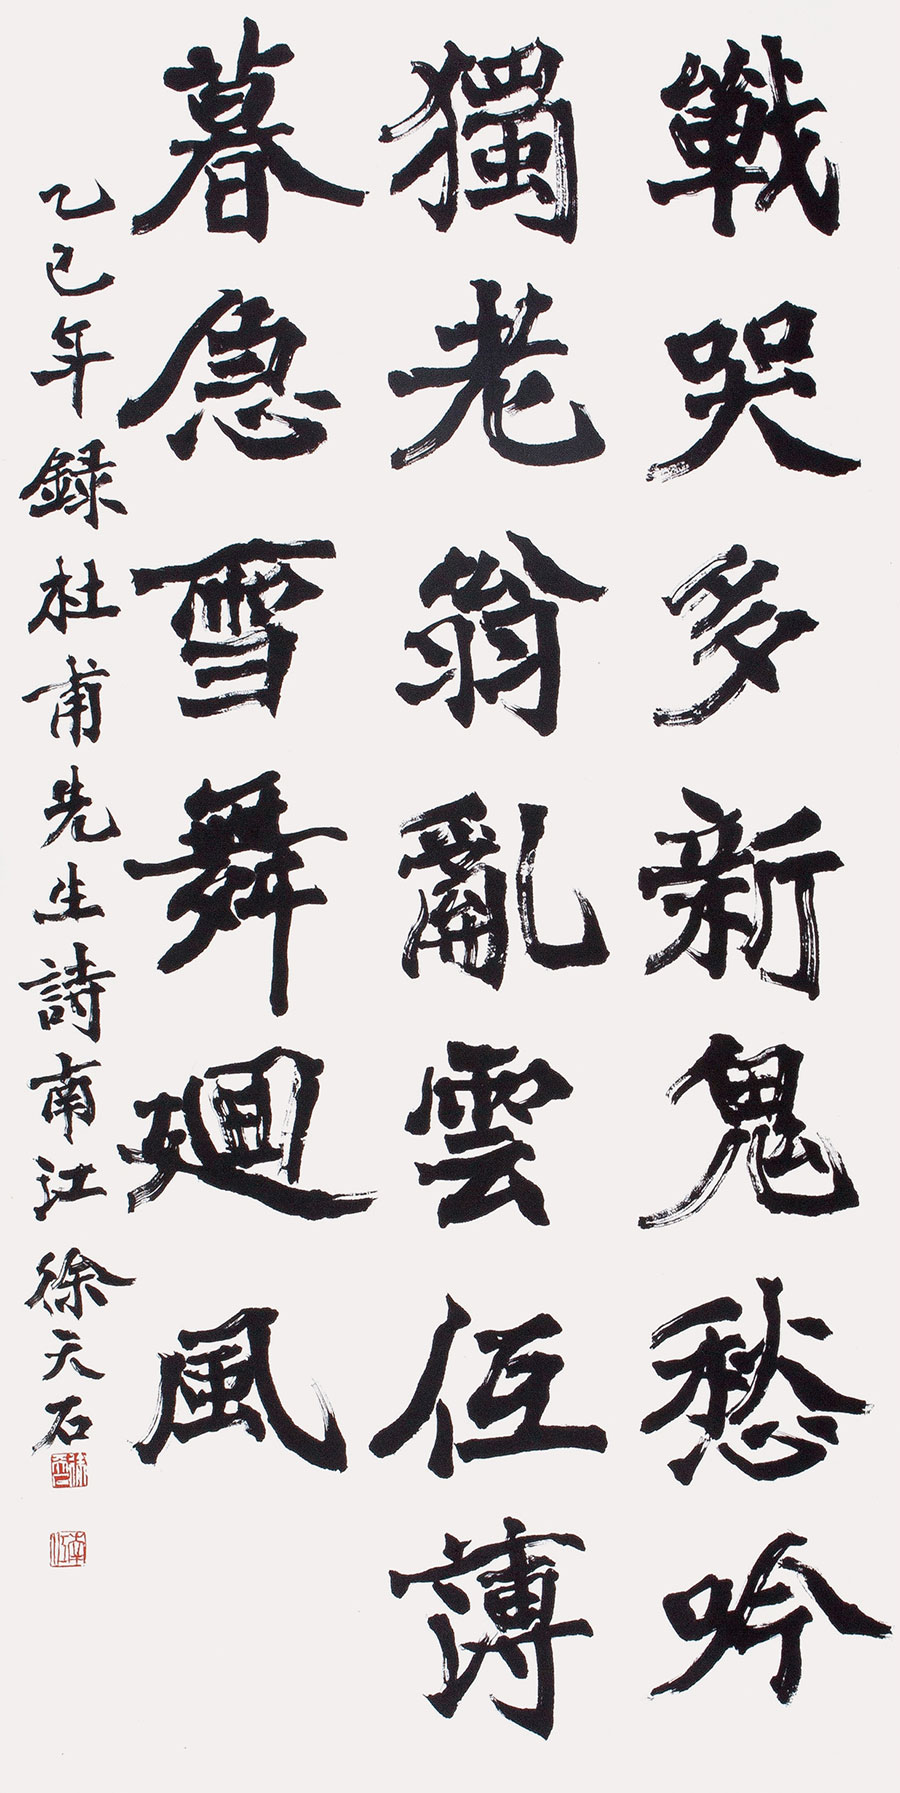 戰哭多新鬼愁吟
獨老翁亂雲低薄
暮急雪舞廻風
乙巳年録杜甫先生詩南江徐天石